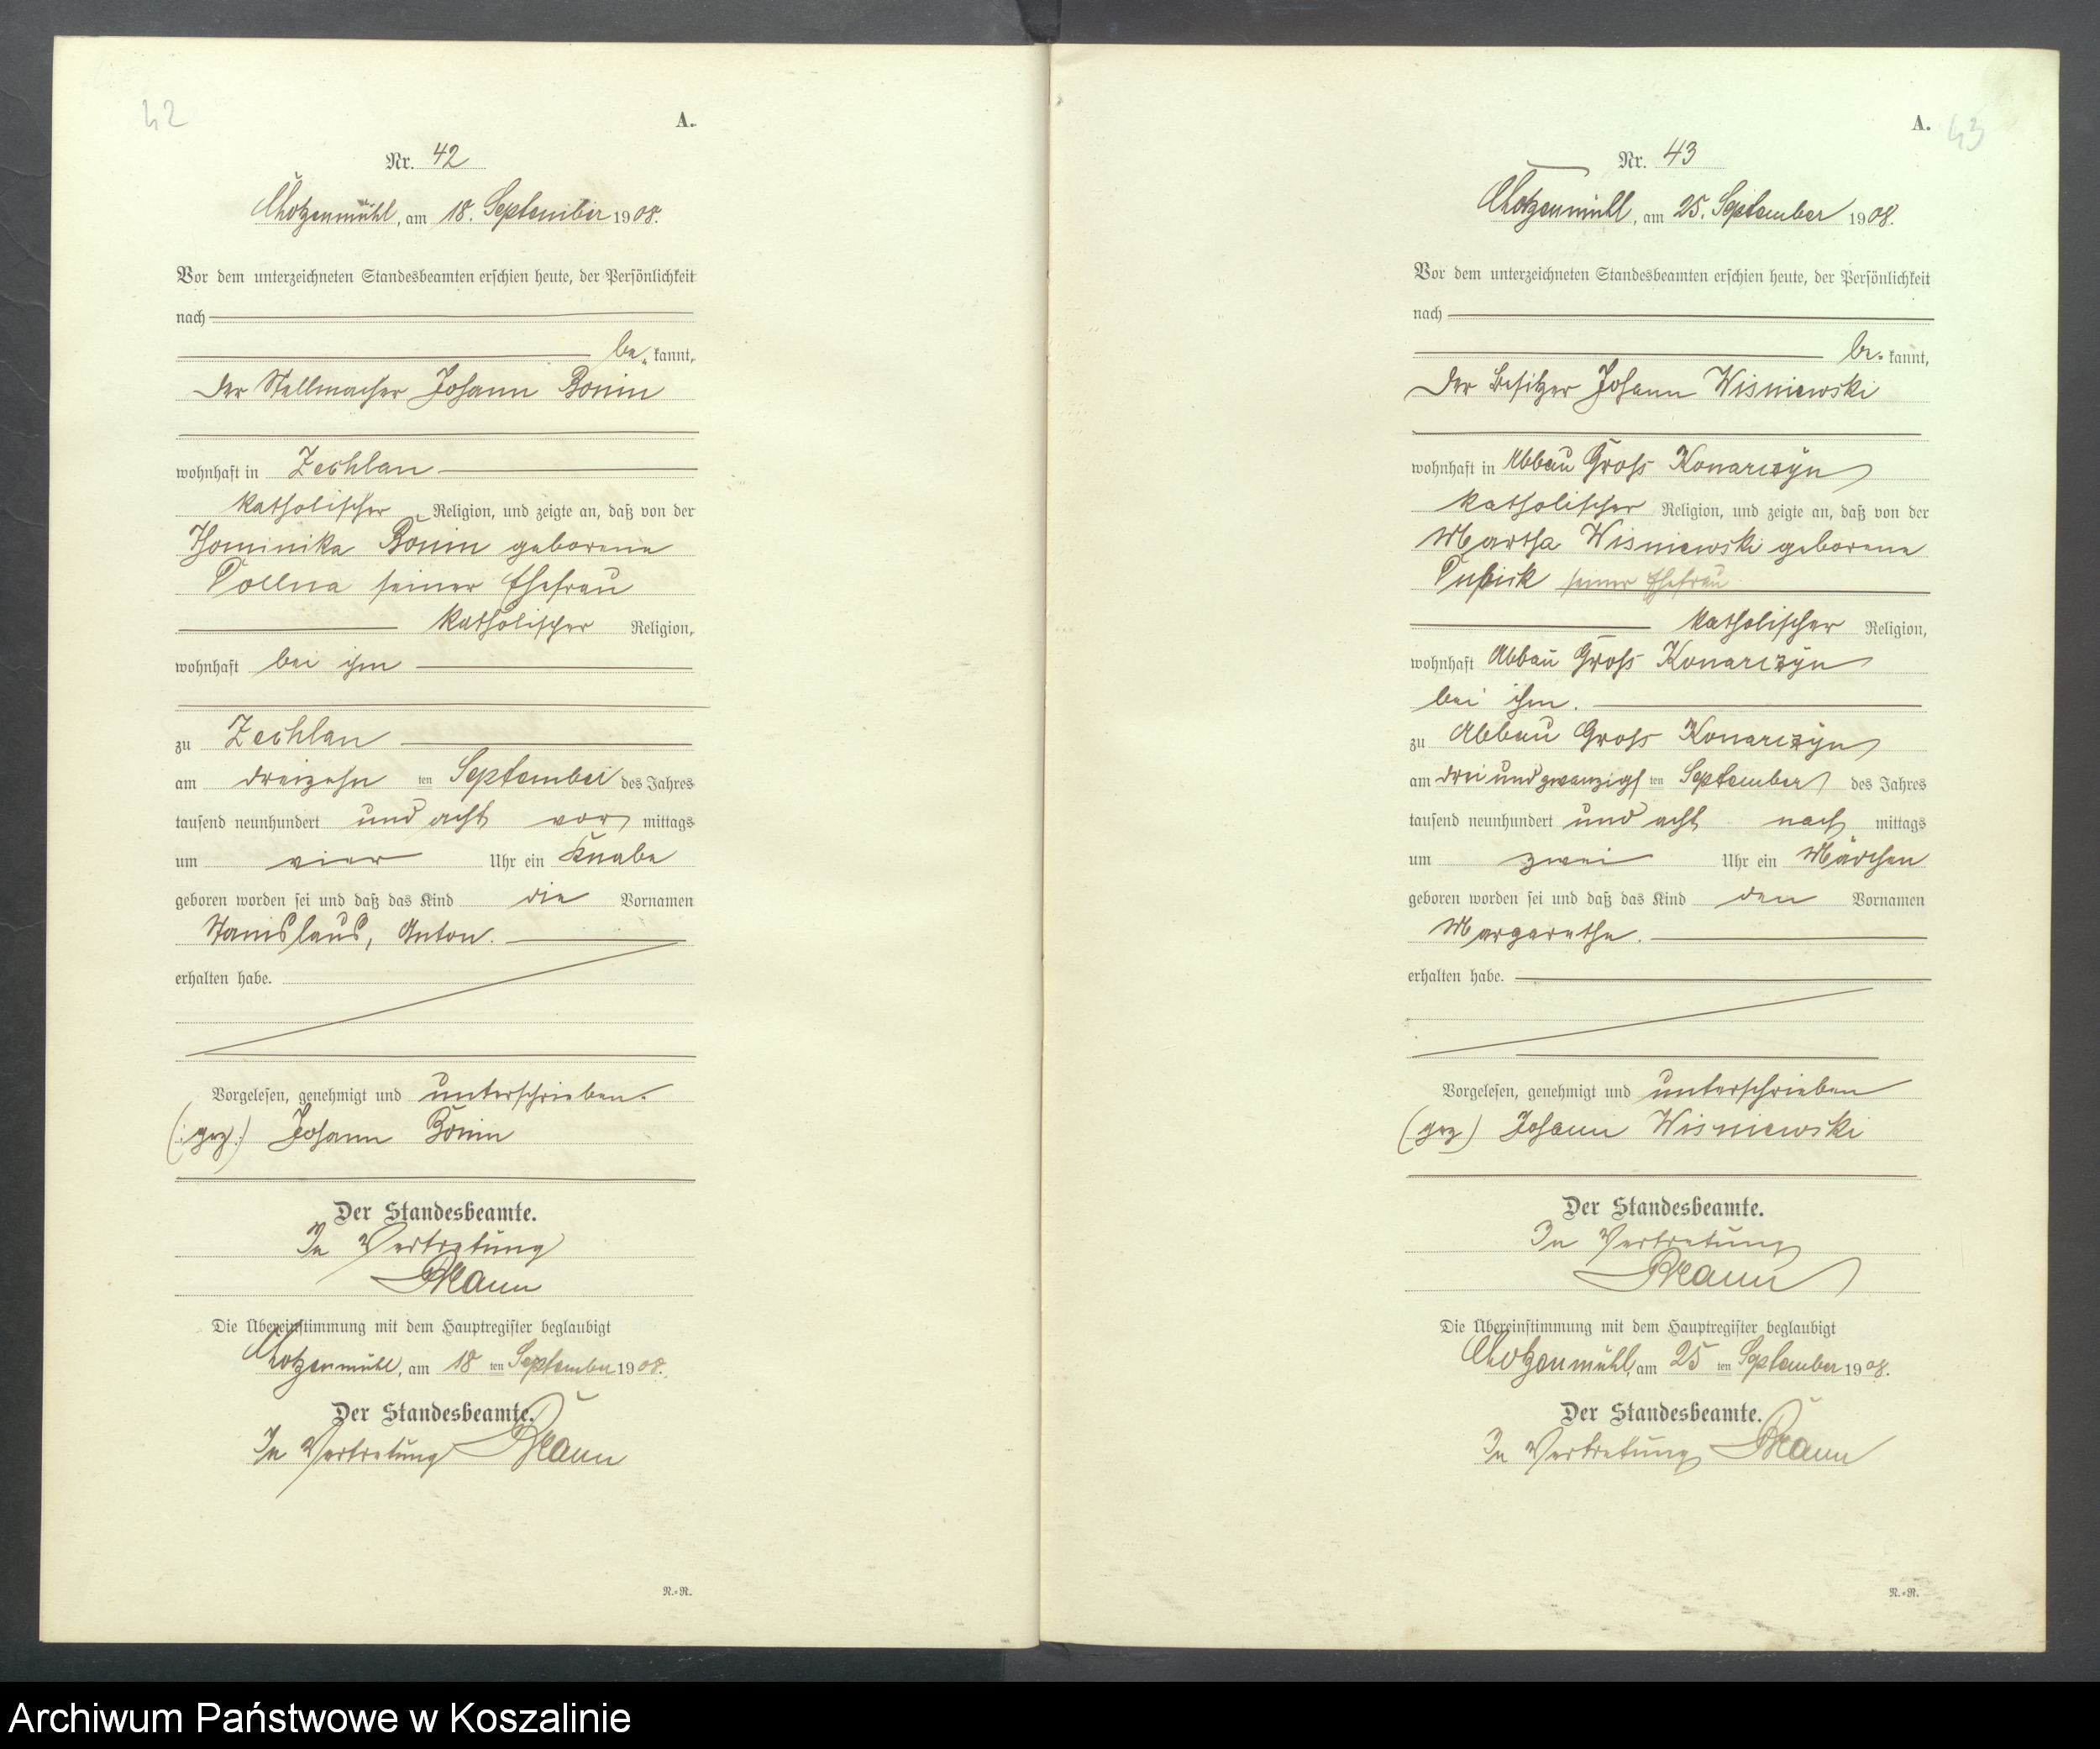 42
A.
Nr. 42
Chotzenmühl, am 18. September 1908.
Vor dem unterzeichneten Standesbeamten erschien heute, der Persönlichkeit
nach
be kannt,
der Stellmacher Johann Bonin
wohnhaft in Zechlau
katholischer Religion, und zeigte an, daß von der
Bonin geborene
seiner Ehefrau
katholischer Religion,
wohnhaft bei ihm
zu Zechlau
am dreizehn ten September des Jahres
tausend neunhundert und acht vor mittags
um vier Uhr ein Knabe
geboren worden sei und daß das Kind die Vornamen
Stanislaus, Anton.
erhalten habe.
Vorgelesen, genehmigt und unterschrieben.
(: gez :) Johann Bonin
Der Standesbeamte.
In Vertretung
Die Übereinstimmung mit dem Hauptregister beglaubigt
Chotzenmühl, am 18 ten September 1908.
Der Standesbeamte.
In Vertretung
N.-R.
43
A.
Nr. 43
Chotzenmühl, am 25. September 1908.
Vor dem unterzeichneten Standesbeamten erschien heute, der Persönlichkeit
nach
be kannt,
der Besitzer Johann Wisniewski
wohnhaft in Abbau Gross Konarczyn
katholischer Religion, und zeigte an, daß von der
Martha Wisniewski geborene
seiner Ehefrau
katholischer Religion,
wohnhaft Abbau Gross Konarczyn
bei ihm.
zu Abbau Gross Konarczyn
am drei und zwanzigs ten September des Jahres
tausend neunhundert und acht nach mittags
um zwei Uhr ein Mädchen
geboren worden sei und daß das Kind den Vornamen
Margarethe.
erhalten habe.
Vorgelesen, genehmigt und unterschrieben
(gez) Johann Wisniewski
Der Standesbeamte.
In Vertretung
Die Übereinstimmung mit dem Hauptregister beglaubigt
Chotzenmühl, am 25 ten September 1908.
Der Standesbeamte.
In Vertretung
N.-R.
Archiwum Państwowe w Koszalinie